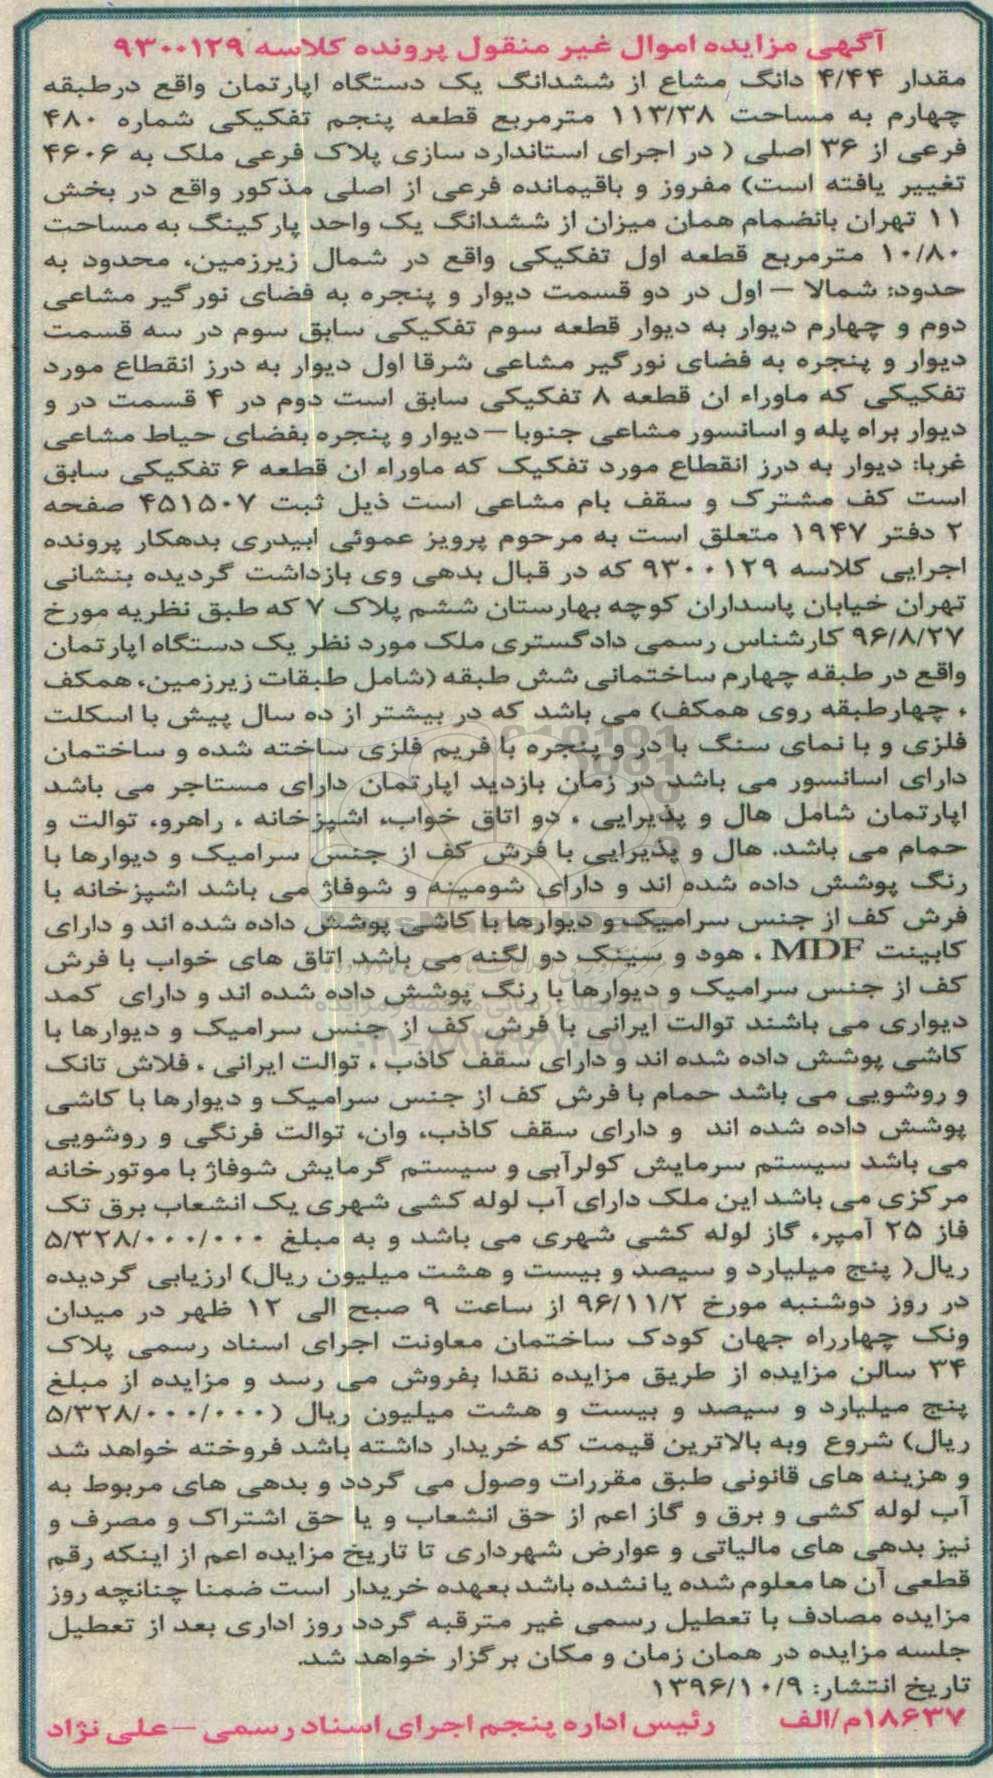 آگهی مزایده اموال غیر منقول پرونده کلاسه ۹۳۰۰۱۲۹
مقدار ۴/۴۴ دانگ مشاع از ششدانگ یک دستگاه اپارتمان واقع درطبقه
چهارم به مساحت ۱۱۳/۳۸ مترمربع قطعه پنجم تفکیکی شماره ۴۸۰
فرعی از ۳۶ اصلی ( در اجرای استاندارد سازی پلاک فرعی ملک به ۴۶۰۶
تغییر یافته است) مفروز و باقیمانده فرعی از اصلی مذکور واقع در بخش
۱۱ تهران بانضمام همان میزان از ششدانگ یک واحد پارکینگ به مساحت
۱۰/۸۰ مترمربع قطعه اول تفکیکی واقع در شمال زیرزمین، محدود به
حدود: شمالا – اول در دو قسمت دیوار و پنجره به فضای نورگیر مشاعی
دوم و چهارم دیوار به دیوار قطعه سوم تفکیکی سابق سوم در سه قسمت
دیوار و پنجره به فضای نورگیر مشاعی شرقا اول دیوار به درز انقطاع مورد
تفکیکی که ماوراء ان قطعه ۸ تفکیکی سابق است دوم در ۴ قسمت در و
دیوار براه پله و اسانسور مشاعی جنوبا –دیوار و پنجره بفضای حیاط مشاعی
غربا: دیوار به درز انقطاع مورد تفکیک که ماوراء ان قطعه ۶ تفکیکی سابق
است کف مشترک و سقف بام مشاعی است ذیل ثبت ۴۵۱۵۰۷ صفحه
۲ دفتر ۱۹۴۷ متعلق است به مرحوم پرویز عموئی ابیدری بدهکار پرونده
اجرایی کلاسه ۹۳۰۰۱۲۹ که در قبال بدهی وی بازداشت گردیده بنشانی
تهران خیابان پاسداران کوچه بهارستان ششم پلاک ۷ که طبق نظریه مورخ
۹۶/۸/۲۷ کارشناس رسمی دادگستری ملک مورد نظر یک دستگاه اپارتمان
واقع در طبقه چهارم ساختمانی شش طبقه (شامل طبقات زیرزمین، همکف
، چهارطبقه روی همکف) می باشد که در بیشتر از ده سال پیش با اسکلت
فلزی و با نمای سنگ با در و پنجره با فریم فلزی ساخته شده و ساختمان
دارای اسانسور می باشد در زمان بازدید اپارتمان دارای مستاجر می باشد
اپارتمان شامل هال و پذیرایی ، دو اتاق خواب، اشپزخانه ، راهرو، توالت و
حمام می باشد. هال و پذیرایی با فرش کف از جنس سرامیک و دیوارها با
رنگ پوشش داده شده اند و دارای شومینه و شوفاژ می باشد اشپزخانه با
فرش کف از جنس سرامیک و دیوارها با کاشی پوشش داده شده اند و دارای
کابینت MDF ، هود و سینک دو لگنه می باشد اتاق های خواب با فرش
کف از جنس سرامیک و دیوارها با رنگ پوشش داده شده اند و دارای کمد
دیواری می باشند توالت ایرانی با فرش کف از جنس سرامیک و دیوارها با
کاشی پوشش داده شده اند و دارای سقف کاذب ، توالت ایرانی ، فلاش تانک
و روشویی می باشد حمام با فرش کف از جنس سرامیک و دیوارها با کاشی
پوشش داده شده اند و دارای سقف کاذب، وان، توالت فرنگی و روشویی
می باشد سیستم سرمایش کولرآبی و سیستم گرمایش شوفاژ با موتورخانه
مرکزی می باشد این ملک دارای آب لوله کشی شهری یک انشعاب برق تک
فاز ۲۵ آمپر، گاز لوله کشی شهری می باشد و به مبلغ ۵/۳۲۸/۰۰۰/۰۰۰
ریال( پنج میلیارد و سیصد و بیست و هشت میلیون ریال) ارزیابی گردیده
در روز دوشنبه مورخ ۹۶/۱۱/۲ از ساعت ۹ صبح الی ۱۲ ظهر در میدان
ونک چهارراه جهان کودک ساختمان معاونت اجرای اسناد رسمی پلاک
۳۴ سالن مزایده از طریق مزایده نقدا بفروش می رسد و مزایده از مبلغ
پنج میلیارد و سیصد و بیست و هشت میلیون ریال (۵/۳۲۸/۰۰۰/۰۰۰
ریال) شروع وبه بالاترین قیمت که خریدار داشته باشد فروخته خواهد شد
و هزینه های قانونی طبق مقررات وصول می گردد و بدهی های مربوط به
آب لوله کشی و برق و گاز اعم از حق انشعاب و یا حق اشتراک و مصرف و
نیز بدهی های مالیاتی و عوارض شهرداری تا تاریخ مزایده اعم از اینکه رقم
قطعی آن ها معلوم شده یا نشده باشد بعهده خریدار است ضمنا چنانچه روز
مزایده مصادف با تعطیل رسمی غیر مترقبه گردد روز اداری بعد از تعطیل
جلسه مزایده در همان زمان و مکان برگزار خواهد شد.
تاریخ انتشار: ۱۳۹۶/۱۰/۹
۱۸۶۳۷م/الف رئیس اداره پنجم اجرای اسناد رسمی –علی نژاد